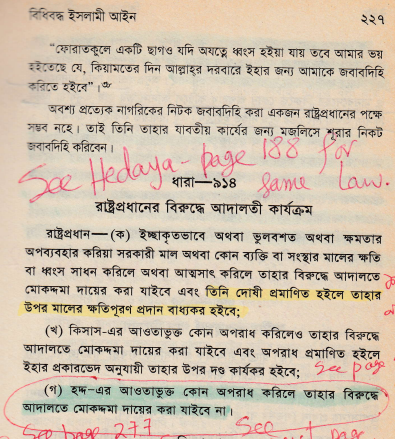 বিধিবদ্ধ ইসলামী আইন ২২৭
“ফোরাতকূলে একটি ছাগও যদি অযত্নে ধ্বংস হইয়া যায় তবে আমার ভয়
হইতেছে যে, কিয়ামতের দিন আল্লাহ্‌র দরবারে ইহার জন্য আমাকে জবাবদিহি
করিতে হইবে”।
অবশ্য প্রত্যেক নাগরিকের নিটক জবাবদিহি করা একজন রাষ্ট্রপ্রধানের পক্ষে
সম্ভব নহে। তাই তিনি তাহার যাবতীয় কার্যের জন্য মজলিসে শূরার নিকট
জবাবদিহি করিবেন।
See Hedaya - page 188 for
same Law.
ধারা—৯১৪
রাষ্ট্রপ্রধানের বিরুদ্ধে আদালতী কার্যক্রম
রাষ্ট্রপ্রধান—(ক) ইচ্ছাকৃতভাবে অথবা ভুলবশত অথবা ক্ষমতার
অপব্যবহার করিয়া সরকারী মাল অথবা কোন ব্যক্তি বা সংস্থার মালের ক্ষতি
বা ধ্বংস সাধন করিলে অথবা আত্মসাৎ করিলে তাহার বিরুদ্ধে আদালতে
মোকদ্দমা দায়ের করা যাইবে এবং তিনি দোষী প্রমাণিত হইলে তাহার
উপর মালের ক্ষতিপূরণ প্রদান বাধ্যকর হইবে;
(খ) কিসাস-এর আওতাভুক্ত কোন অপরাধ করিলেও তাহার বিরুদ্ধে
আদালতে মোকদ্দমা দায়ের করা যাইবে এবং অপরাধ প্রমাণিত হইলে
ইহার প্রকারভেদ অনুযায়ী তাহার উপর দণ্ড কার্যকর হইবে; See page
(গ) হদ্দ-এর আওতাভুক্ত কোন অপরাধ করিলে তাহার বিরুদ্ধে
আদালতে মোকদ্দমা দায়ের করা যাইবে না।
See page 277 See page